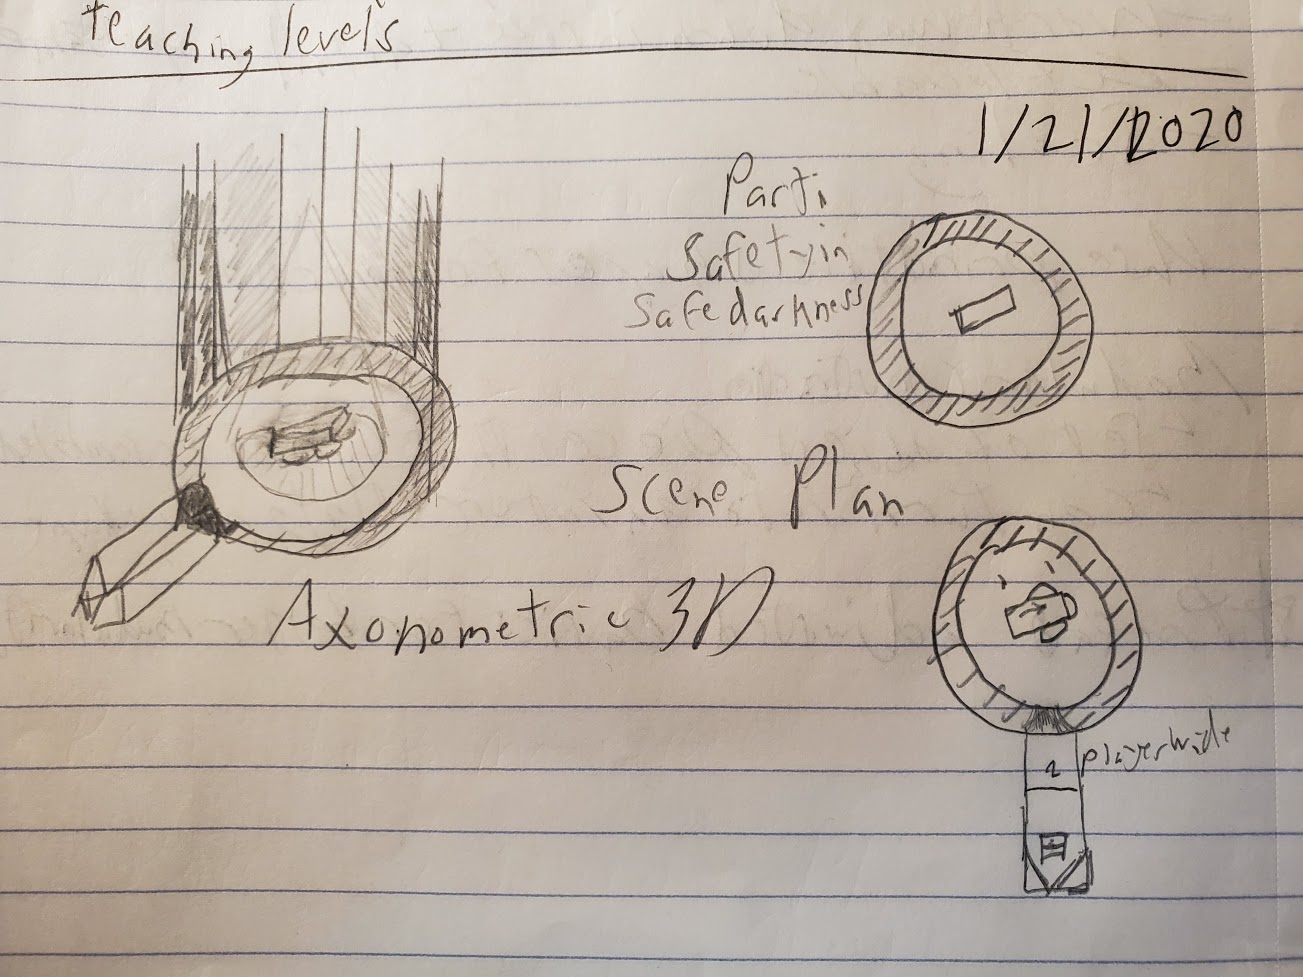 teaching levels
1/21/2020
Parti
Safety in
Safe darkness
Scene Plan
Axonometric 3D
2 player wide